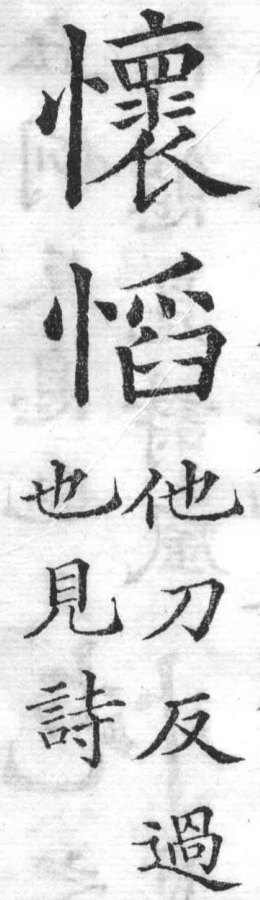 懷慆
他刀反過
也見詩